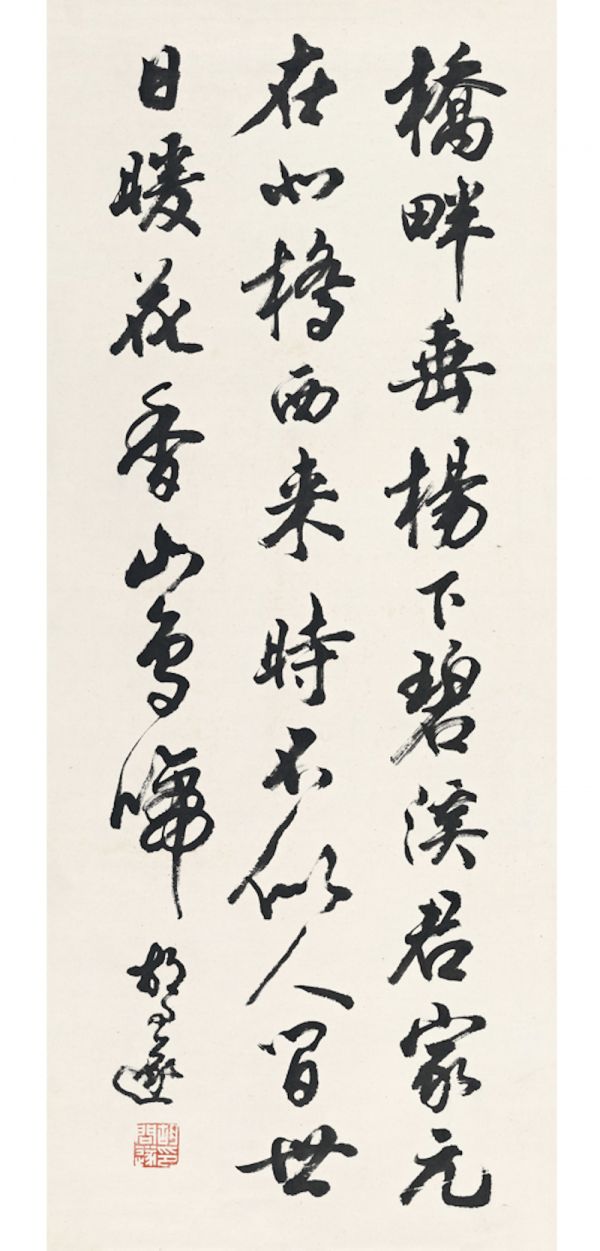 橋畔垂楊下碧溪君家元
在北橋西来時不似人間世
日暖花香山鳥啼
胡問遂
胡印問遂